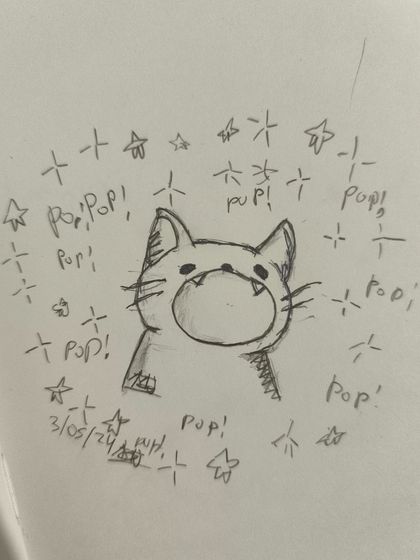 pup!
Pop!
Pop! Pop!
Pop!
Pop!
Pop!
Pop!
Pop!
3/05/24
pup!